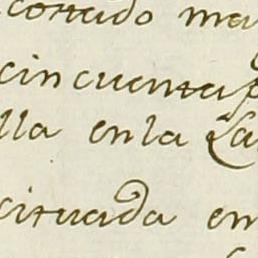 cortado ma
cincuenta p
lla en la La
cituada em